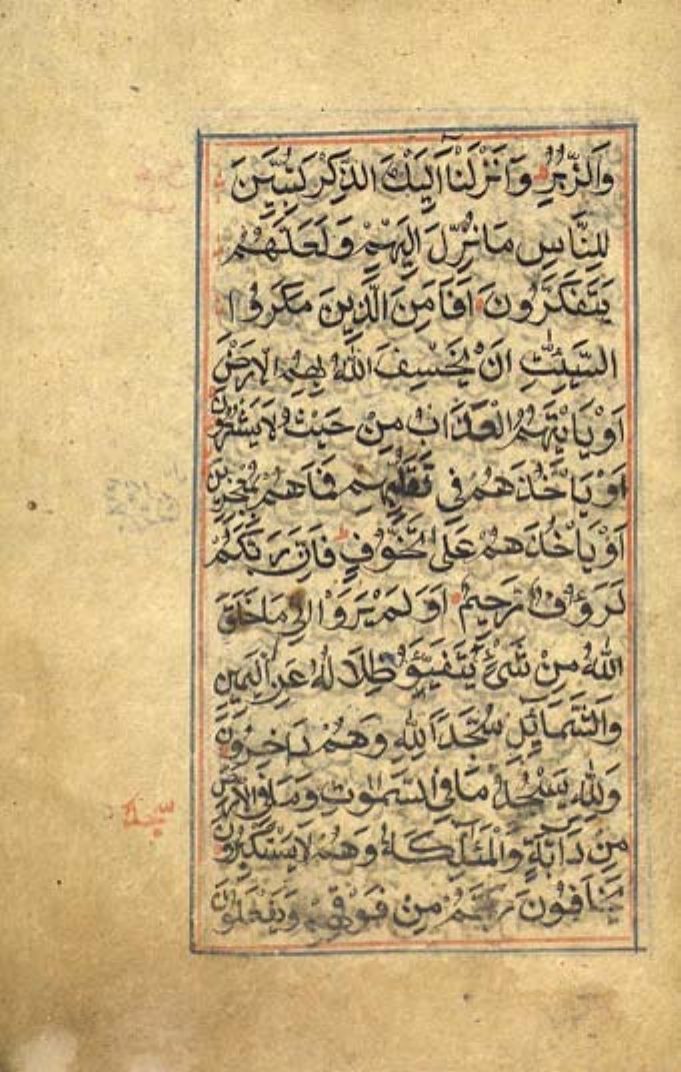 وَالزُّبُرِ وَاَنْزَلْنَا اِلَيْكَ الذِّكْرَ لِتُبَيِّنَ
لِلنَّاسِ مَا نُزِّلَ اِلَيْهِمْ وَلَعَلَّهُمْ
يَتَفَكَّرُونَ اَفَاَمِنَ الَّذِينَ مَكَرُوا
السَّيِّئٰتِ اَنْ يَخْسِفَ اللهُ بِهِمُ الْاَرْضَ
اَوْ يَاْتِيَهُمُ الْعَذَابُ مِنْ حَيْثُ لَا يَشْعُرُونَ
اَوْ يَاْخُذَهُمْ فِي تَقَلُّبِهِمْ فَمَا هُمْ بِمُعْجِزِينَ
اَوْ يَاْخُذَهُمْ عَلٰى تَخَوُّفٍ فَاِنَّ رَبَّكُمْ
لَرَؤُفٌ رَحِيمٌ اَوَلَمْ يَرَوْا اِلٰى مَا خَلَقَ
اللهُ مِنْ شَيْءٍ يَتَفَيَّؤُ ظِلَالُهُ عَنِ الْيَمِينِ
وَالشَّمَائِلِ سُجَّدًا لِلّٰهِ وَهُمْ دَاخِرُونَ
وَلِلّٰهِ يَسْجُدُ مَا فِي السَّمٰوٰتِ وَمَا فِي الْاَرْضِ
مِنْ دَابَّةٍ وَالْمَلٰئِكَةُ وَهُمْ لَا يَسْتَكْبِرُونَ
يَخَافُونَ رَبَّهُمْ مِنْ فَوْقِهِمْ وَيَفْعَلُونَ
سجدة